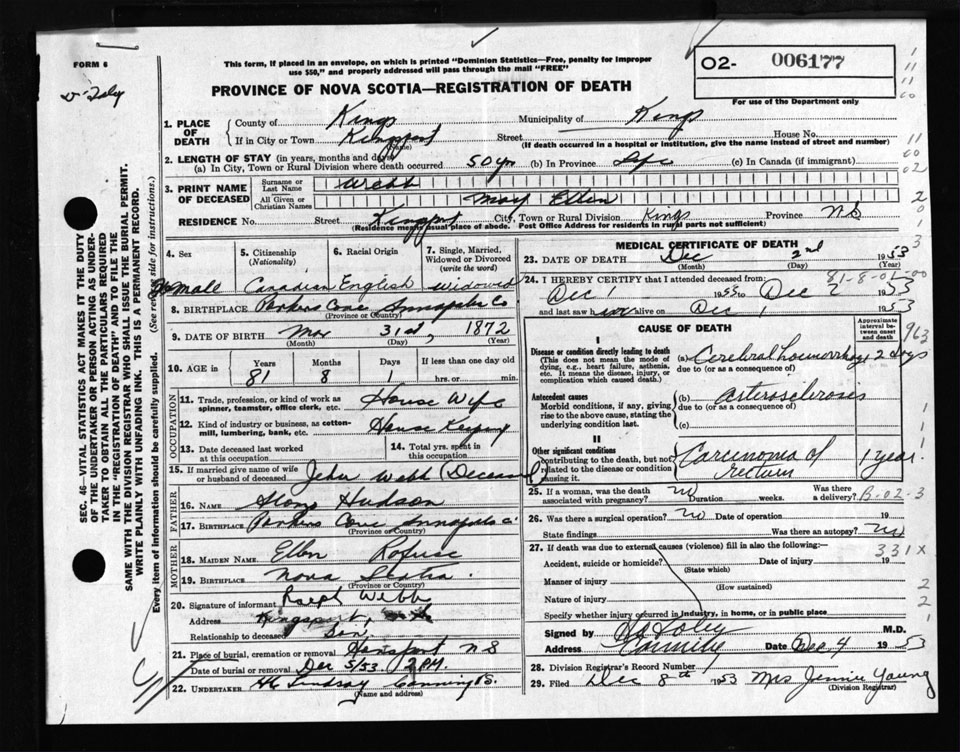 FORM 6
This form, if placed in an envelope, on which is printed "Dominion Statistics—Free, penalty for improper
use $50," and properly addressed will pass through the mail "FREE"
O2- 006177
For use of the Department only
PROVINCE OF NOVA SCOTIA—REGISTRATION OF DEATH
1. PLACE OF DEATH
County of Kings Municipality of Kings
If in City or Town Kingsport Street House No.
(Name) (If death occurred in a hospital or institution, give the name instead of street and number)
2. LENGTH OF STAY (in years, months and days)
(a) In City, Town or Rural Division where death occurred 50 yrs (b) In Province Life (c) In Canada (if immigrant)
3. PRINT NAME OF DECEASED
Surname or Last Name Webb
All Given or Christian Names May Ellen
RESIDENCE No. Street Kingsport City, Town or Rural Division Kings Province N S
(Residence means usual place of abode. Post Office Address for residents in rural parts not sufficient)
4. Sex Female
5. Citizenship (Nationality) Canadian
6. Racial Origin English
7. Single, Married, Widowed or Divorced (write the word) Widowed
8. BIRTHPLACE Parkers Cove Annapolis Co
(Province or Country)
9. DATE OF BIRTH Mar 31st, 1872
(Month) (Day) (Year)
10. AGE in Years Months Days If less than one day old
81 8 1 hrs. or min.
OCCUPATION
11. Trade, profession, or kind of work as spinner, teamster, office clerk, etc. House Wife
12. Kind of industry or business, as cotton-mill, lumbering, bank, etc. House Keeping
13. Date deceased last worked at this occupation
14. Total yrs. spent in this occupation
15. If married give name of wife or husband of deceased John Webb (Deceased)
FATHER
16. NAME Hudson
17. BIRTHPLACE Parkers Cove Annapolis Co
(Province or Country)
MOTHER
18. MAIDEN NAME Ellen Rofuse
19. BIRTHPLACE Nova Scotia.
(Province or Country)
20. Signature of informant Ralph Webb
Address Kingsport, N S
Relationship to deceased Son
21. Place of burial, cremation or removal Hantsport N S
Date of burial or removal Dec 5/53 2 P.M.
22. UNDERTAKER Lindsay Canning N.S.
(Name and address)
MEDICAL CERTIFICATE OF DEATH
23. DATE OF DEATH Dec 2nd 1953
(Month) (Day) (Year)
81-8-01-00
24. I HEREBY CERTIFY that I attended deceased from:
Dec 1 1953 to Dec 2 1953
and last saw alive on Dec 1 1953
CAUSE OF DEATH
Approximate interval between onset and death
963
I
Disease or condition directly leading to death
(This does not mean the mode of dying, e.g., heart failure, asthenia, etc. It means the disease, injury, or complication which caused death.)
(a) Cerebral hemorrhage 2 days
due to (or as a consequence of)
Antecedent causes
Morbid conditions, if any, giving rise to the above cause, stating the underlying condition last.
(b) arterosclerosis
due to (or as a consequence of)
(c)
II
Other significant conditions
contributing to the death, but not related to the disease or condition causing it.
Carcinoma of rectum 1 year.
25. If a woman, was the death associated with pregnancy? no Duration weeks. Was there a delivery?
B-02-3
26. Was there a surgical operation? no Date of operation 19
State findings Was there an autopsy? no
27. If death was due to external causes (violence) fill in also the following:
331X
Accident, suicide or homicide? Date of injury 19
(State which)
Manner of injury
(How sustained)
Nature of injury
Specify whether injury occurred in industry, in home, or in public place
Signed by M.D.
Address Canning Date Dec 4 1953
28. Division Registrar's Record Number
29. Filed Dec 8th 1953 Mrs Jennie Young
(Division Registrar)
SEC. 46—VITAL STATISTICS ACT MAKES IT THE DUTY
OF THE UNDERTAKER OR PERSON ACTING AS UNDER-
TAKER TO OBTAIN ALL THE PARTICULARS REQUIRED
IN THE "REGISTRATION OF DEATH" AND TO FILE THE
SAME WITH THE DIVISION REGISTRAR WHO SHALL ISSUE THE BURIAL PERMIT.
WRITE PLAINLY WITH UNFADING INK. THIS IS A PERMANENT RECORD.
Every item of Information should be carefully supplied. (See reverse side for instructions.)